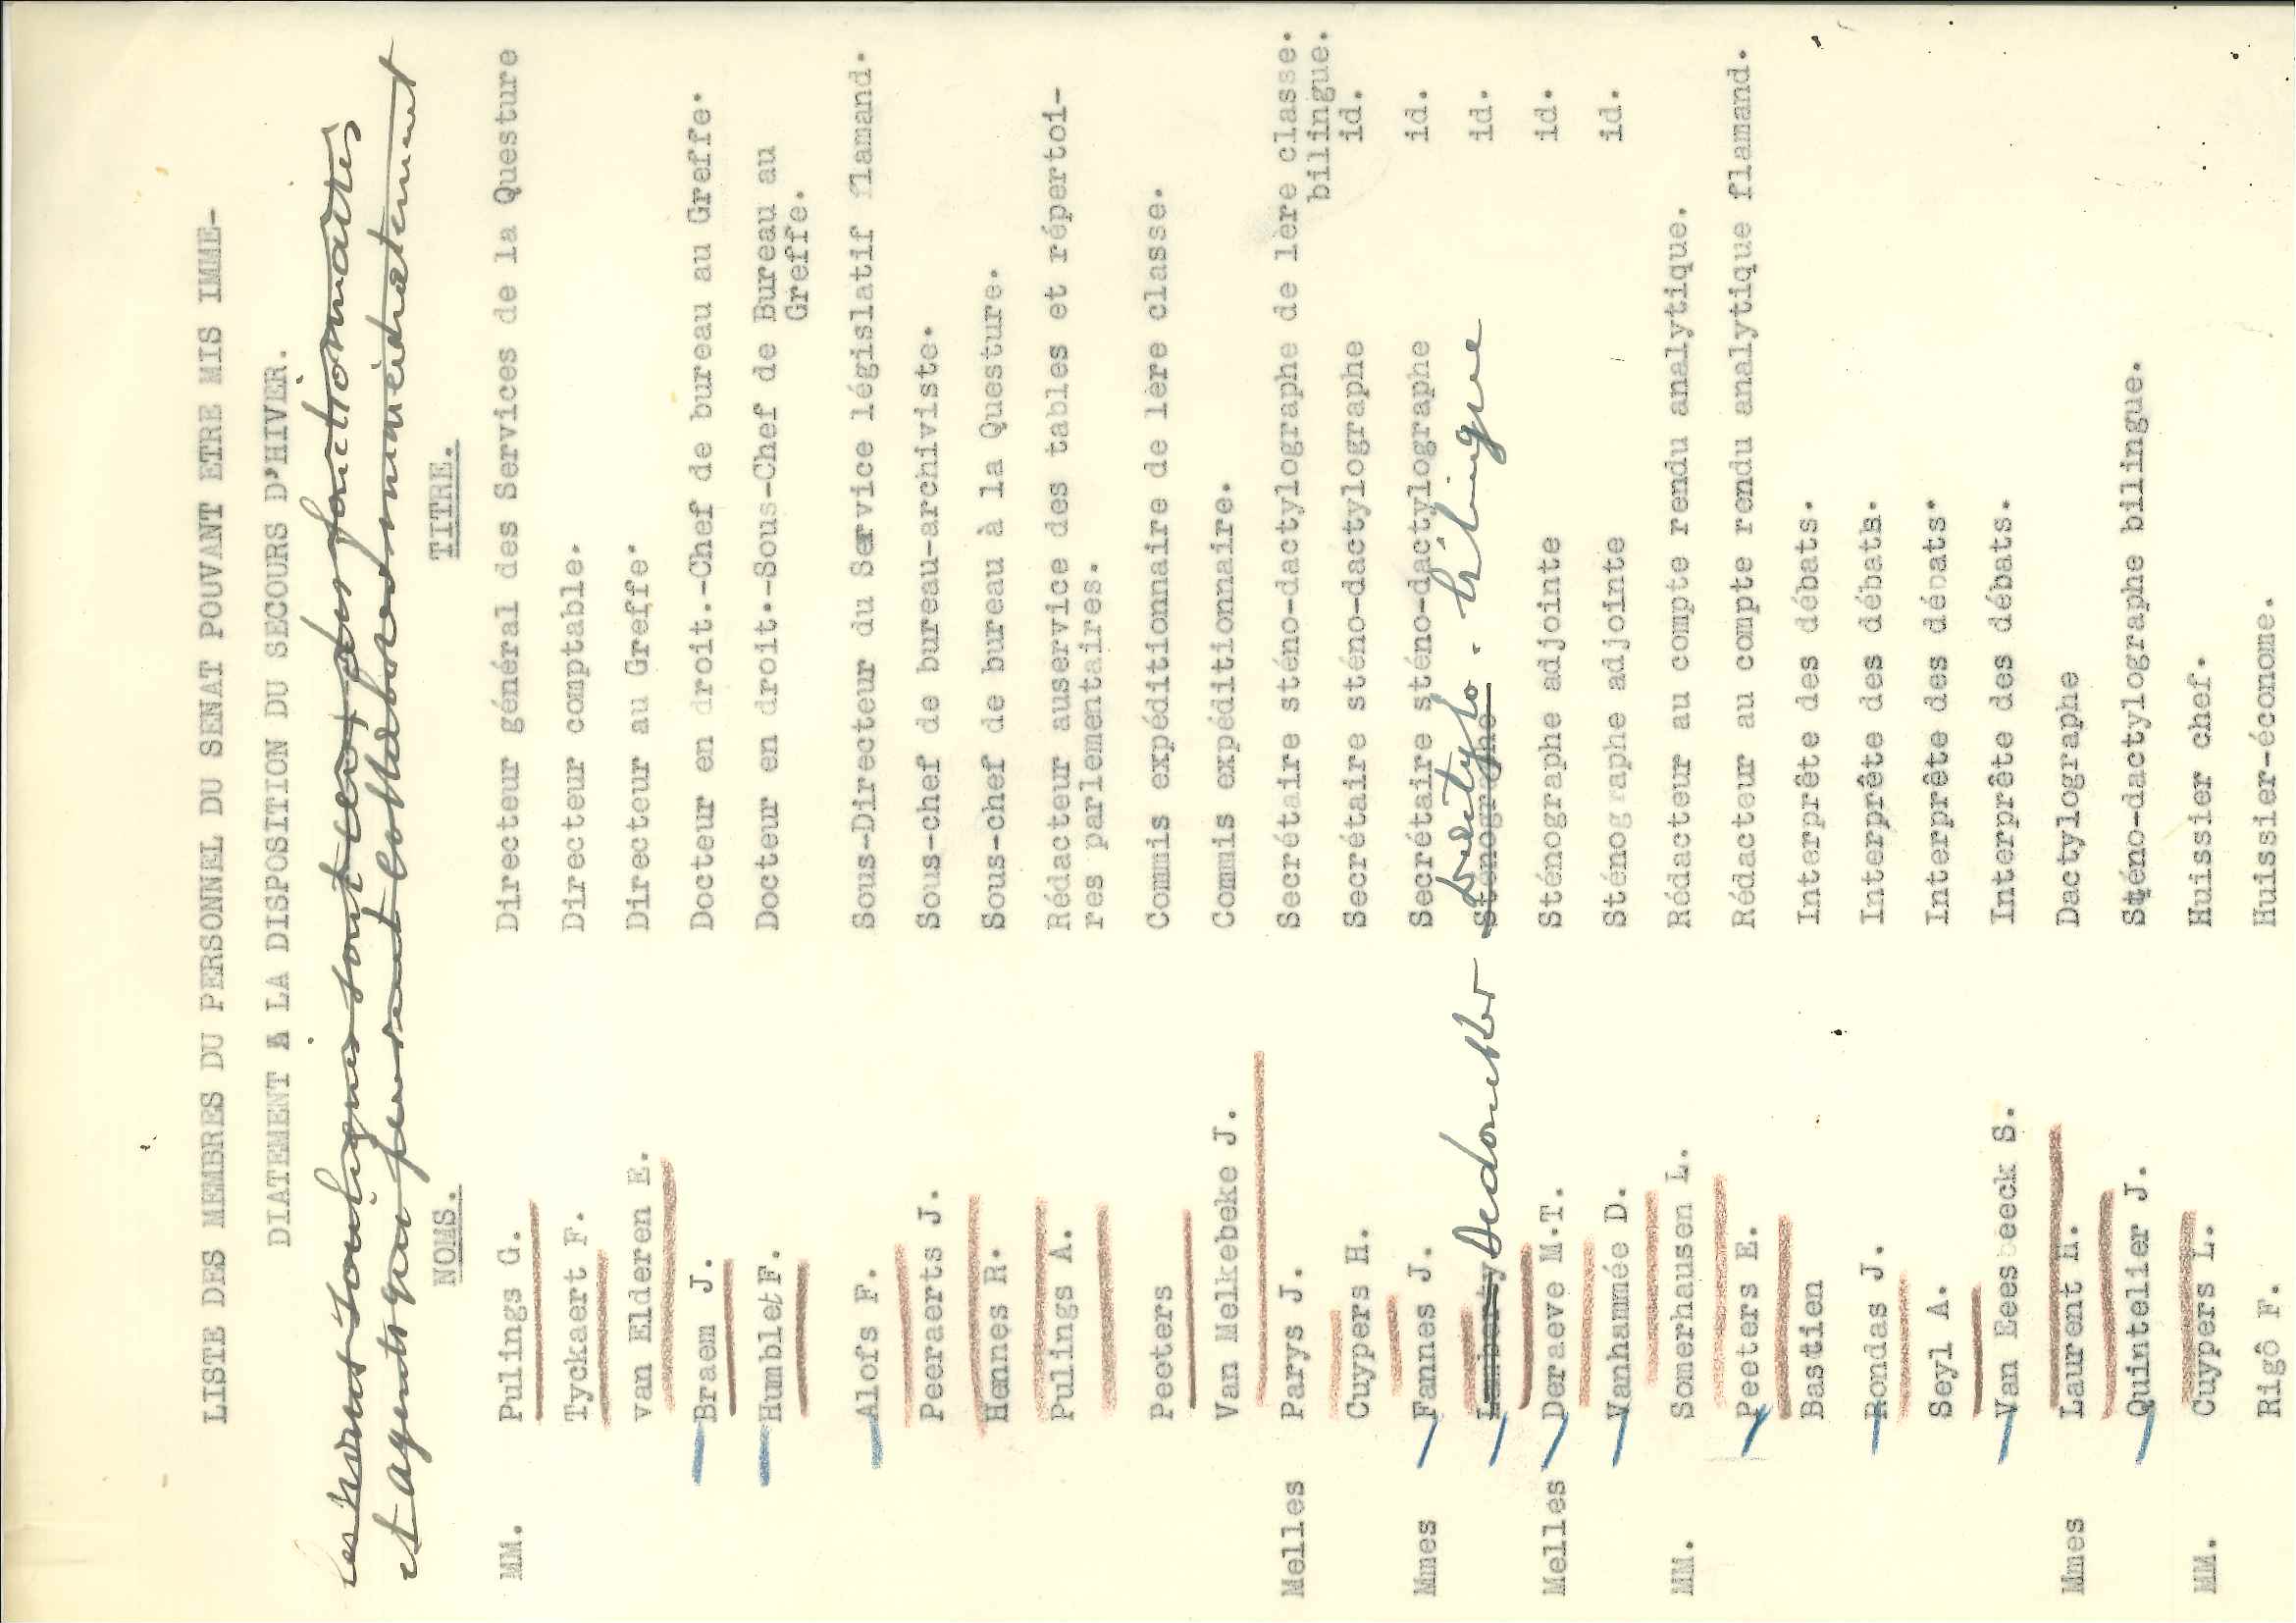 LISTE DES MEMBRES DU PERSONNEL DU SENAT POUVANT ETRE MIS IMME-
DIATEMENT A LA DISPOSITION DU SECOURS D'HIVER.
Les noms soulignés sont ceux des fonctionnaires
et agents qui peuvent collaborer immédiatement
NOMS. TITRE.
MM. Pulings G. Directeur général des Services de la Questure
Tyckaert F. Directeur comptable.
van Elderen E. Directeur au Greffe.
Braem J. Docteur en droit.-Chef de bureau au Greffe.
Humblet F. Docteur en droit.-Sous-Chef de Bureau au
Greffe.
Alofs F. Sous-Directeur du Service législatif flamand.
Peeraerts J. Sous-chef de bureau-archiviste.
Hennes R. Sous-chef de bureau à la Questure.
Pulings A. Rédacteur auservice des tables et répertoi-
res parlementaires.
Peeters Commis expéditionnaire de lère classe.
Van Melkebeke J. Commis expéditionnaire.
Melles Parys J. Secrétaire sténo-dactylographe de lere classe.
bilingue.
Cuypers H. Secrétaire sténo-dactylographe id.
Mmes Fannes J. Secrétaire sténo-dactylographe id.
Dedoncker Sténographe Dactylo. bilingue id.
Melles Deraeve M.T. Sténographe adjointe id.
Vanhammée D. Sténographe adjointe id.
MM. Somerhausen L. Rédacteur au compte rendu analytique.
Peeters E. Rédacteur au compte rendu analytique flamand.
Bastien Interprête des débats.
Rondas J. Interprête des débats.
Seyl A. Interprête des débats.
Van Eesbeeck S. Interprête des débats.
Mmes Laurent H. Dactylographe
Quintelier J. Sténo-dactylographe bilingue.
MM. Cuypers L. Huissier chef.
Rigô F. Huissier-économe.